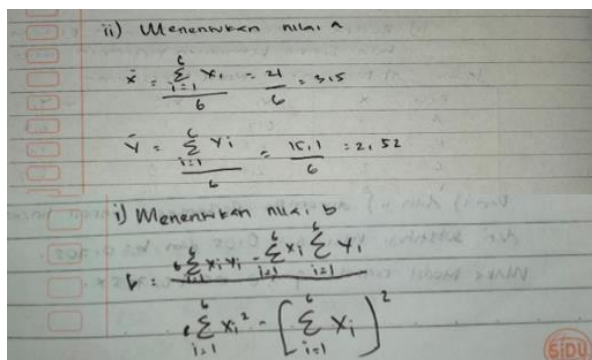 ii) Menentukan nilai a
x̄ = Σ_{i=1}^{6} xi / 6 = 21 / 6 = 3,5
Ȳ = Σ_{i=1}^{6} Yi / 6 = 15,1 / 6 = 2,52
i) Menentukan nilai b
b = 6 Σ_{i=1}^{6} xi Yi - Σ_{i=1}^{6} xi Σ_{i=1}^{6} Yi / 6 Σ_{i=1}^{6} xi² - [Σ_{i=1}^{6} xi]²
SIDU